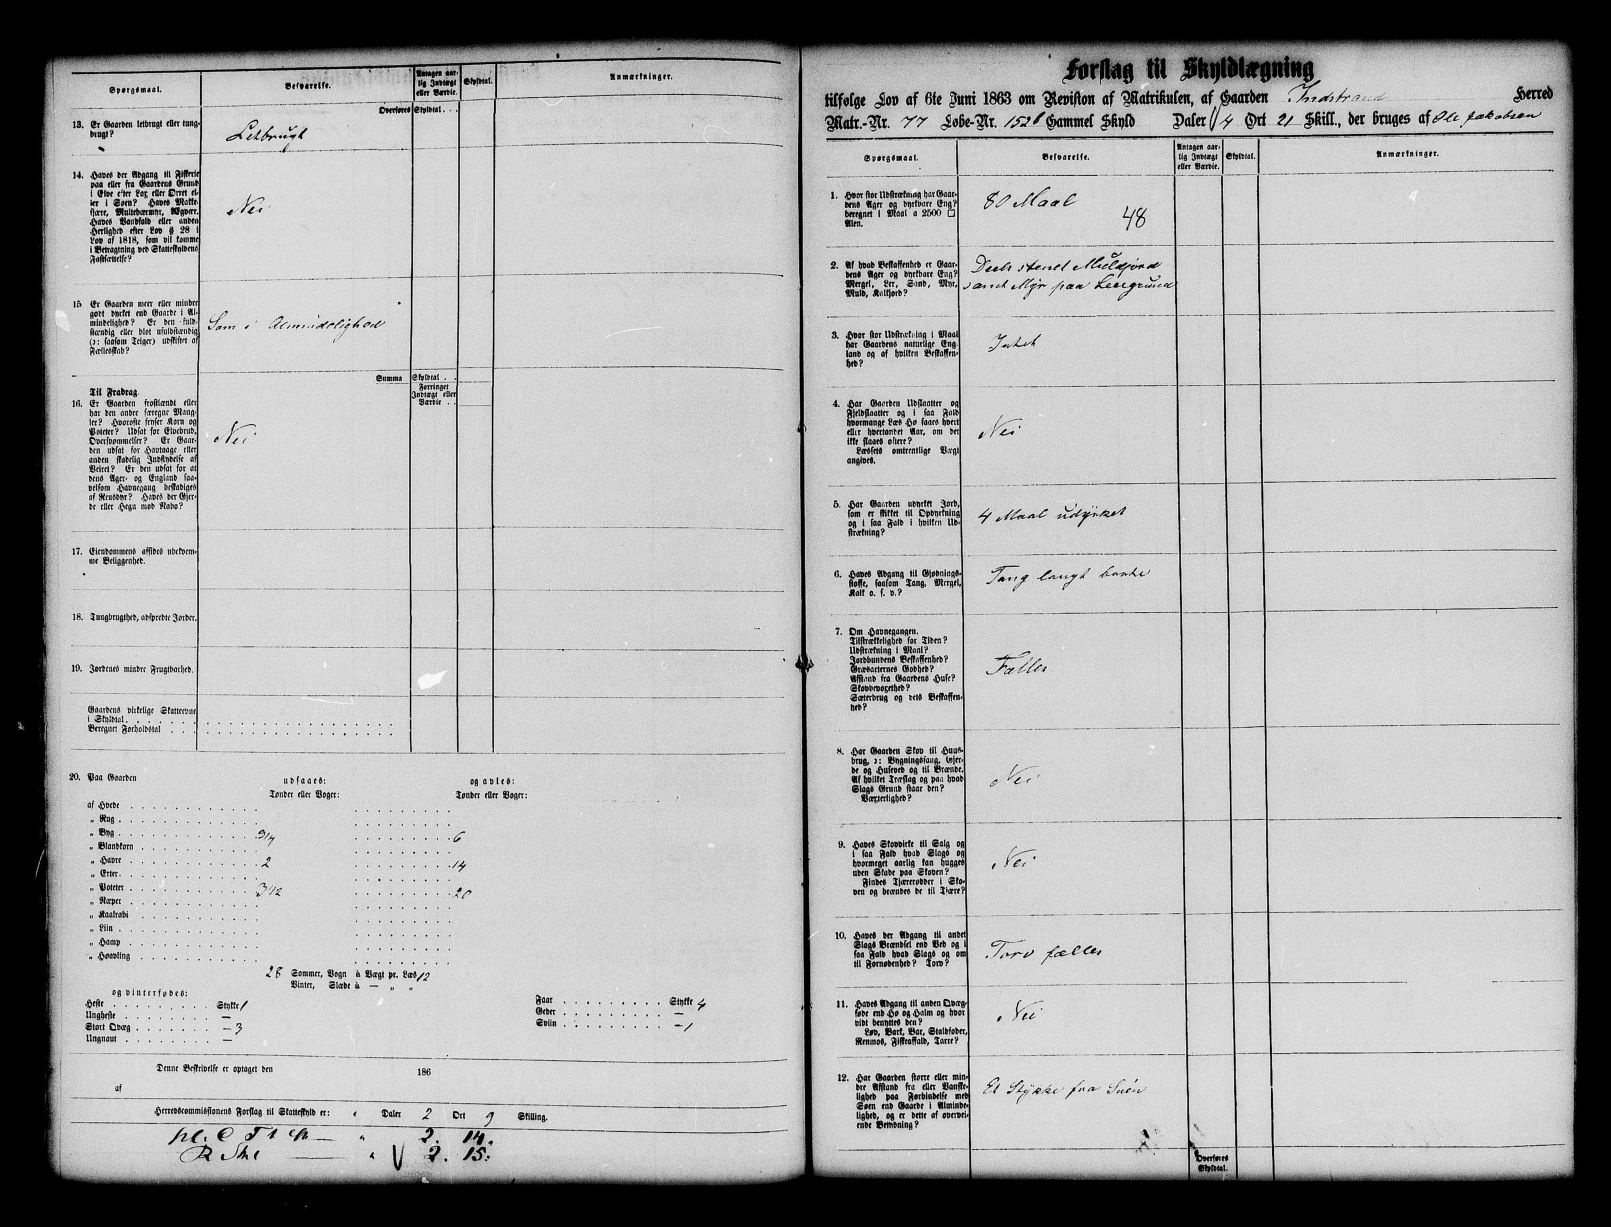 Spørgsmaal.
Besvarelse.
Antagen aar-
lig Indtægt
eller Værdie.
Skyldtal.
Anmærkninger.
Overføres Skyldtal . .
13. Er Gaarden letbrugt eller tung-
brugt?
Letbrugt
14. Haves der Adgang til Fiskerie
paa eller fra Gaardens Grund
i Elve efter Lax eller Ørret el-
ler i Søen? Haves Makke-
fjære, Multebærmyr, Ægvær,
Haves Vandfald eller anden
Herlighed efter Lov § 28 i
Lov af 1818, som vil komme
i Betragtning ved Skatteskyldens
Fastsættelse?
Nei
15. Er Gaarden meer eller mindre
godt dyrket end Gaarde i Al-
mindelighed? Er den fuld-
stændig eller blot ufuldstændig
(ɔ: saasom Teiger) udskiftet af
Fællesskab?
Som i Almindelighed
Summa Skyldtal . .
Forringet
Indtægt eller
Værdie . .
Til Fradrag.
16. Er Gaarden frostlændt eller
har den andre særegne Mang-
ler? Hvorofte fryser Korn og
Poteter? Udsat for Elvebrud,
Oversvømmelser? Er Gaar-
den udsat for Havtaage eller
anden skadelig Indflydelse af
Veiret? Er den udsat for at
dens Ager- og England saa-
velsom Havnegang beskadiges
af Rensdyr? Haves der Gjer-
de eller Hegn mod Nabo?
Nei
17. Eiendommens afsides ubekvem-
me Beliggenhed.
18. Tungbrugthed, adspredte Jorder.
19. Jordenes mindre Frugtbarhed.
Gaardens virkelige Skatteevne
i Skyldtal
Beregnet Forholdstal
20. Paa Gaarden
udsaaes:
og avles:
Tønder eller Voger:
Tønder eller Voger:
af Hvede
„ Rug
„ Byg 3/4 6
„ Blandkorn
„ Havre 2 14
„ Erter
„ Poteter 3 1/2 20
„ Næper
„ Kaalrabi
„ Liin
„ Hamp
„ Høavling
28 Sommer, Vogn à Vægt pr. Læs 12
Vinter, Slæde à — „ „
og vinterfødes:
Heste Stykke 1
Ungheste —
Stort Qvæg — 3
Ungnaut —
Faar Stykke 4
Geder —
Sviin — 1
Denne Beskrivelse er optaget den 186
af
Herredscommissionens Forslag til Skatteskyld er: „ Daler 2 Ort 9 Skilling.
„ 2. 14.
„ 2. 15.
Forslag til Skyldlægning
tilfølge Lov af 6te Juni 1863 om Revision af Matrikulen, af Gaarden Indstrand Herred
Matr.-Nr. 77 Løbe-Nr. 152b Gammel Skyld Daler 4 Ort 21 Skill., der bruges af Ole Jakobsen
Spørgsmaal.
Besvarelse.
Antagen aar-
lig Indtægt
eller Værdie.
Skyldtal.
Anmærkninger.
1. Hvor stor Udstrækning har Gaar-
dens Ager og dyrkbare Eng?
beregnet i Maal a 2500 □
Alen.
80 Maal
48
2. Af hvad Beskaffenhed er Gaar-
dens Ager og dyrkbare Eng?
Mergel, Ler, Sand, Myr,
Muld, Kalkjord?
Deels stenet Muldjord
samt Myr paa Leergrund
3. Hvor stor Udstrækning i Maal
har Gaardens naturlige Eng-
land og af hvilken Beskaffen-
hed?
Intet
4. Har Gaarden Udslaatter og
Fjeldslaatter og i saa Fald
hvormange Læs Hø saaes hvert
eller hvertandet Aar, om der
ikke slaaes oftere?
Læssets omtrentlige Vægt
angives.
Nei
5. Har Gaarden udyrket Jord,
som er skikket til Opdyrkning
og i saa Fald i hvilken Ud-
strækning?
4 Maal udyrket
6. Haves Adgang til Gjødnings-
stoffe, saasom Tang, Mergel,
Kalk o. s. v.?
Tang langt borte
7. Om Havnegangen.
Tilstrækkelighed for Tiden?
Udstrækning i Maal?
Jordbundens Beskaffenhed?
Græsarternes Godhed?
Afstand fra Gaardens Huse?
Skovbevoxethed?
Sæterbrug og dets Beskaffen-
hed?
Fælles
8. Har Gaarden Skov til Huus-
brug, ɔ: Bygningsfang, Gjer-
de og Husved og til Brænde.
Af hvilket Træslag og paa hvad
Slags Grund staar den?
Væxterlighed?
Nei
9. Haves Skovvirke til Salg og
i saa Fald hvad Slags og
hvormeget aarlig kan hugges
uden Skade paa Skoven?
Findes Tjærerødder i Sko-
ven og brændes de til Tjære?
Nei
10. Haves der Adgang til andet
Slags Brændsel end Ved og i
saa Fald hvad Slags og om
til Fornødenhed? Torv?
Torv fælles
11. Haves Adgang til anden Qvæg-
føde end Hø og Halm og hvor
vidt benyttes den?
Løv, Bark, Bar, Staldfoder,
Renmos, Fiskeaffald, Tarre?
Nei
12. Har Gaarden større eller min-
dre Afstand fra eller Vanske-
lighed paa Forbindelse med
Søen end Gaarde i Alminde-
lighed, og er dette af overvei-
ende Betydning?
Et Stykke fra Søen
Overføres
Skyldtal.